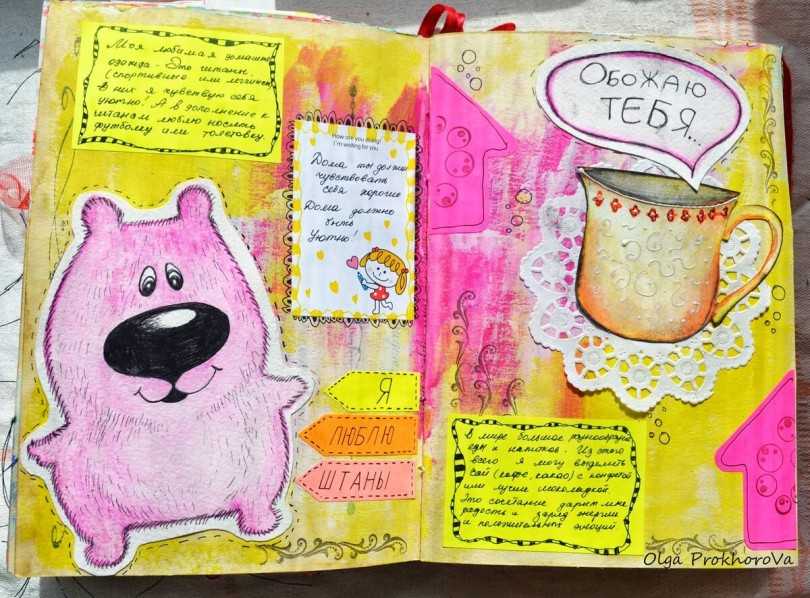 Моя любимая домашняя
одежда - Это штаны
(спортивного или леггинсы)
В них я чувствую себя
уютно! А в дополнение к
штанам люблю носить
футболку или толстовку
How are you doing?
I'm waiting for you
Дома ты должен
чувствовать
себя хорошо
Дома должно
быть
Уютно!
Я
ЛЮБЛЮ
ШТАНЫ
ОБОЖАЮ
ТЕБЯ...
В мире большое разнообразие
еды и напитков. Из этого
всего я могу выделить
чай (кофе, какао) с конфетой
или лучше шоколадкой.
Это сочетание дарит мне
радость и заряд энергии
и положительных эмоций
Olga ProkhoroVa